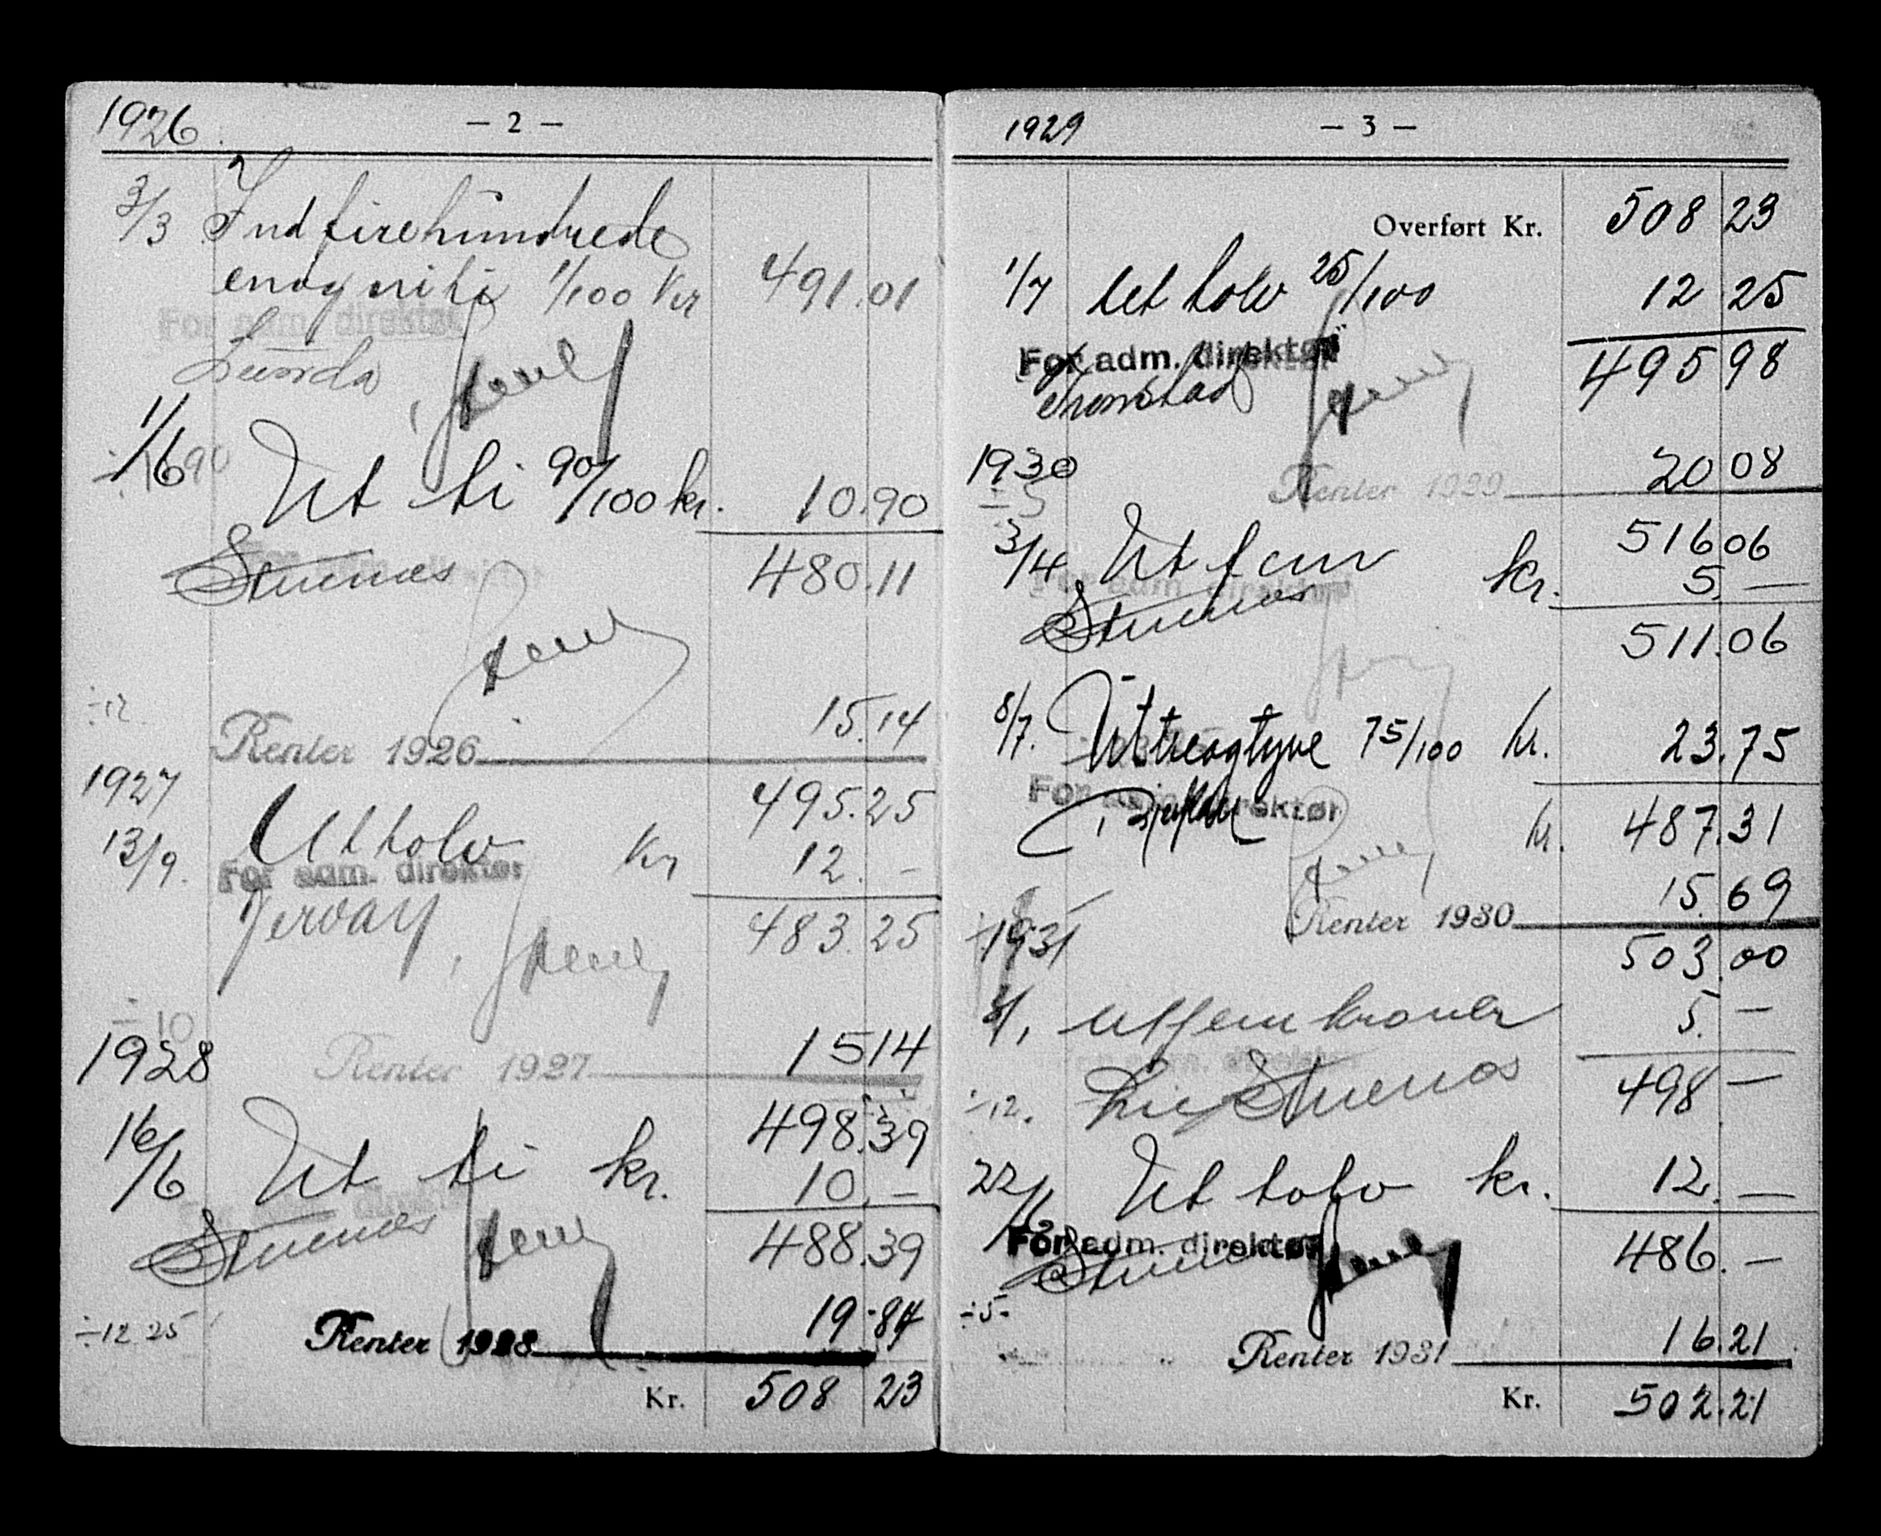 1926 — 2 —
3/3 Ind firehundrede
enog niti 1/100 Kr 491.01
For adm. direktør
Lunda
1/6 Ut ti 90/100 kr. 10.90
Stuenæs 480.11
÷12.
Renter 1926 15.14
1927 495.25
13/9. Ut tolv Kr 12.-
For adm. direktør
483.25
÷10
1928 Renter 1927 1514
498.39
16/6 Ut ti kr. 10.-
Stuenæs 488.39
÷12 25 Renter 1928 19.84
Kr. 508 23
1929 — 3 —
Overført Kr. 508 23
1/7 Ut tolv 25/100 12 25
For adm. direktør 495 98
Tronstad
1930 Renter 1929 20 08
÷5
516 06
3/4 Ut fem kr. 5.—
For adm. direktør
Stuenæs
511.06
8/7. Ut treogtyve 75/100 kr. 23.75
For adm. direktør
kr. 487.31
15.69
Renter 1930
1931 503.00
8/1, ut fem kroner 5.—
For adm. direktør
÷12. Stuenæs 498 —
22/6 Ut tolv kr. 12.—
For adm. direktør
Stuenæs 486.—
÷5-
Renter 1931 16.21
Kr. 502.21